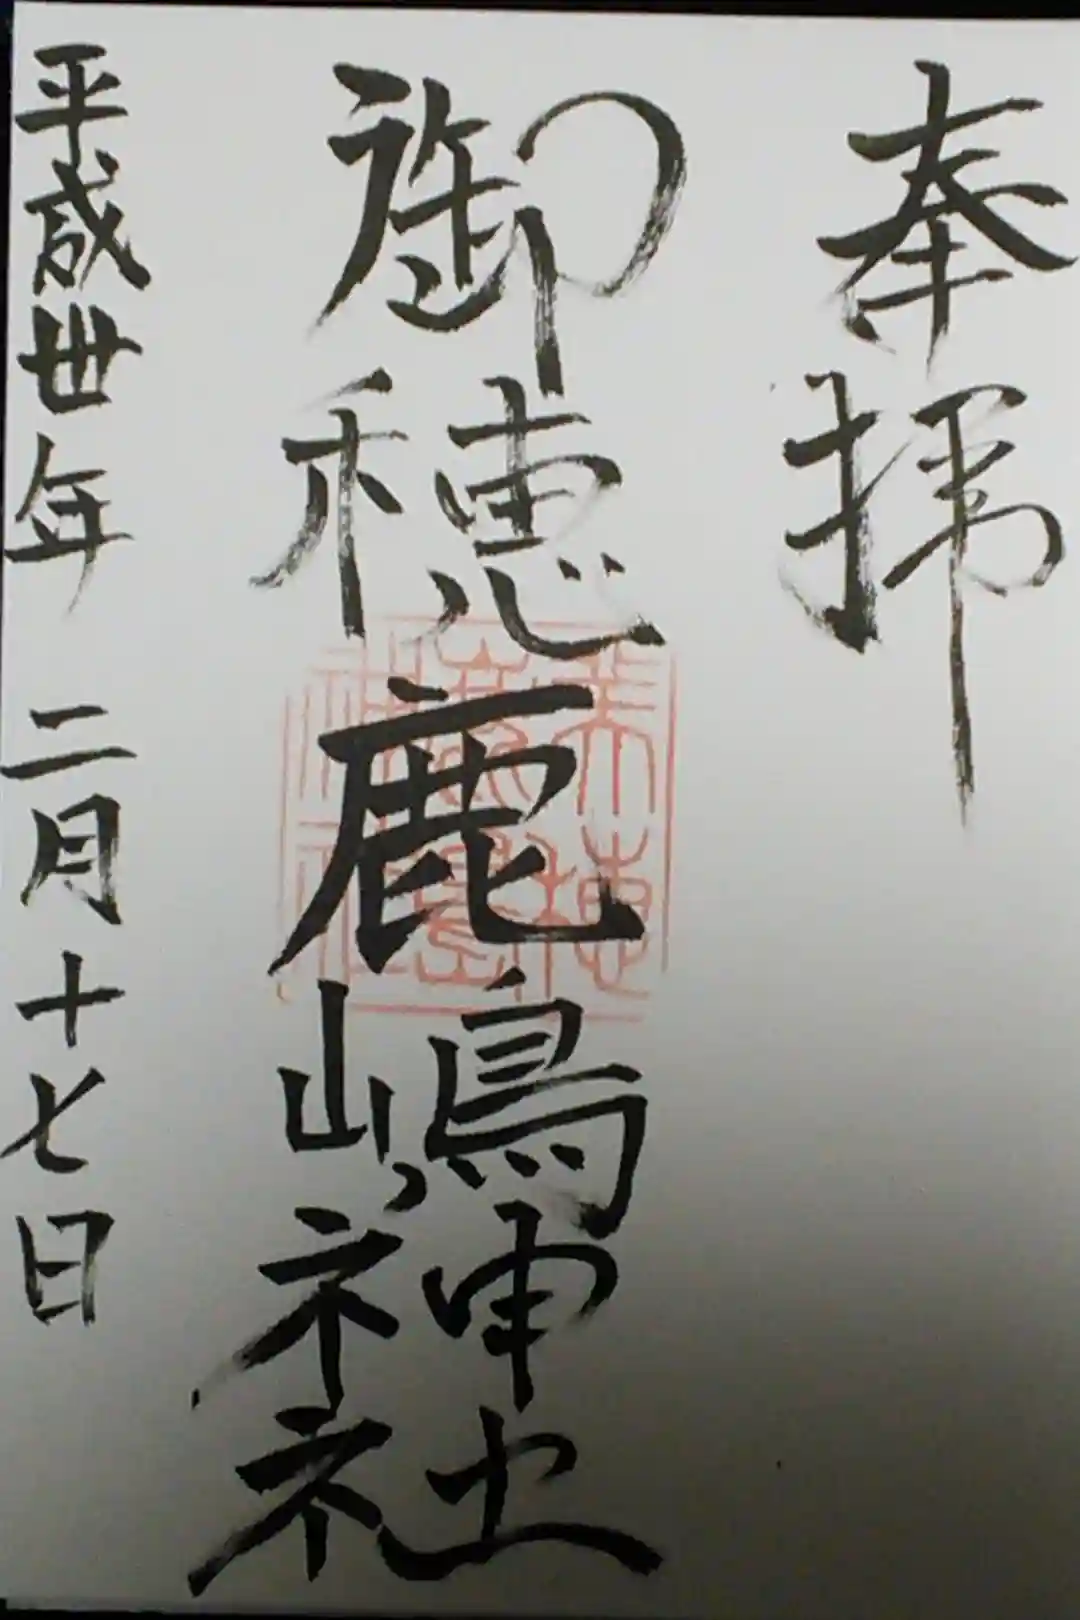 奉拝
御穂鹿嶋神社
平成丗年 二月十七日